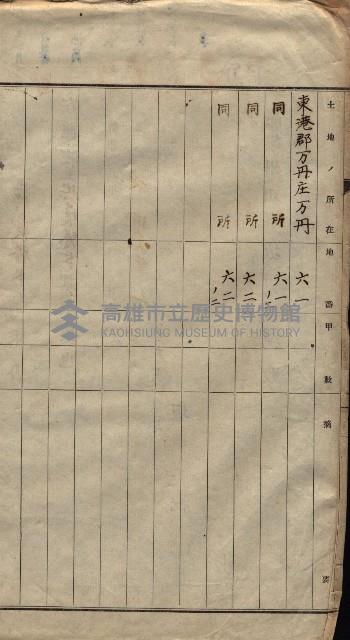 土地ノ所在地 番 甲数 摘要
東港郡万丹庄万丹 六一
同所 六一ノ二
同所 六二
同所 六二ノ二
高雄市立歷史博物館
KAOHSIUNG MUSEUM OF HISTORY